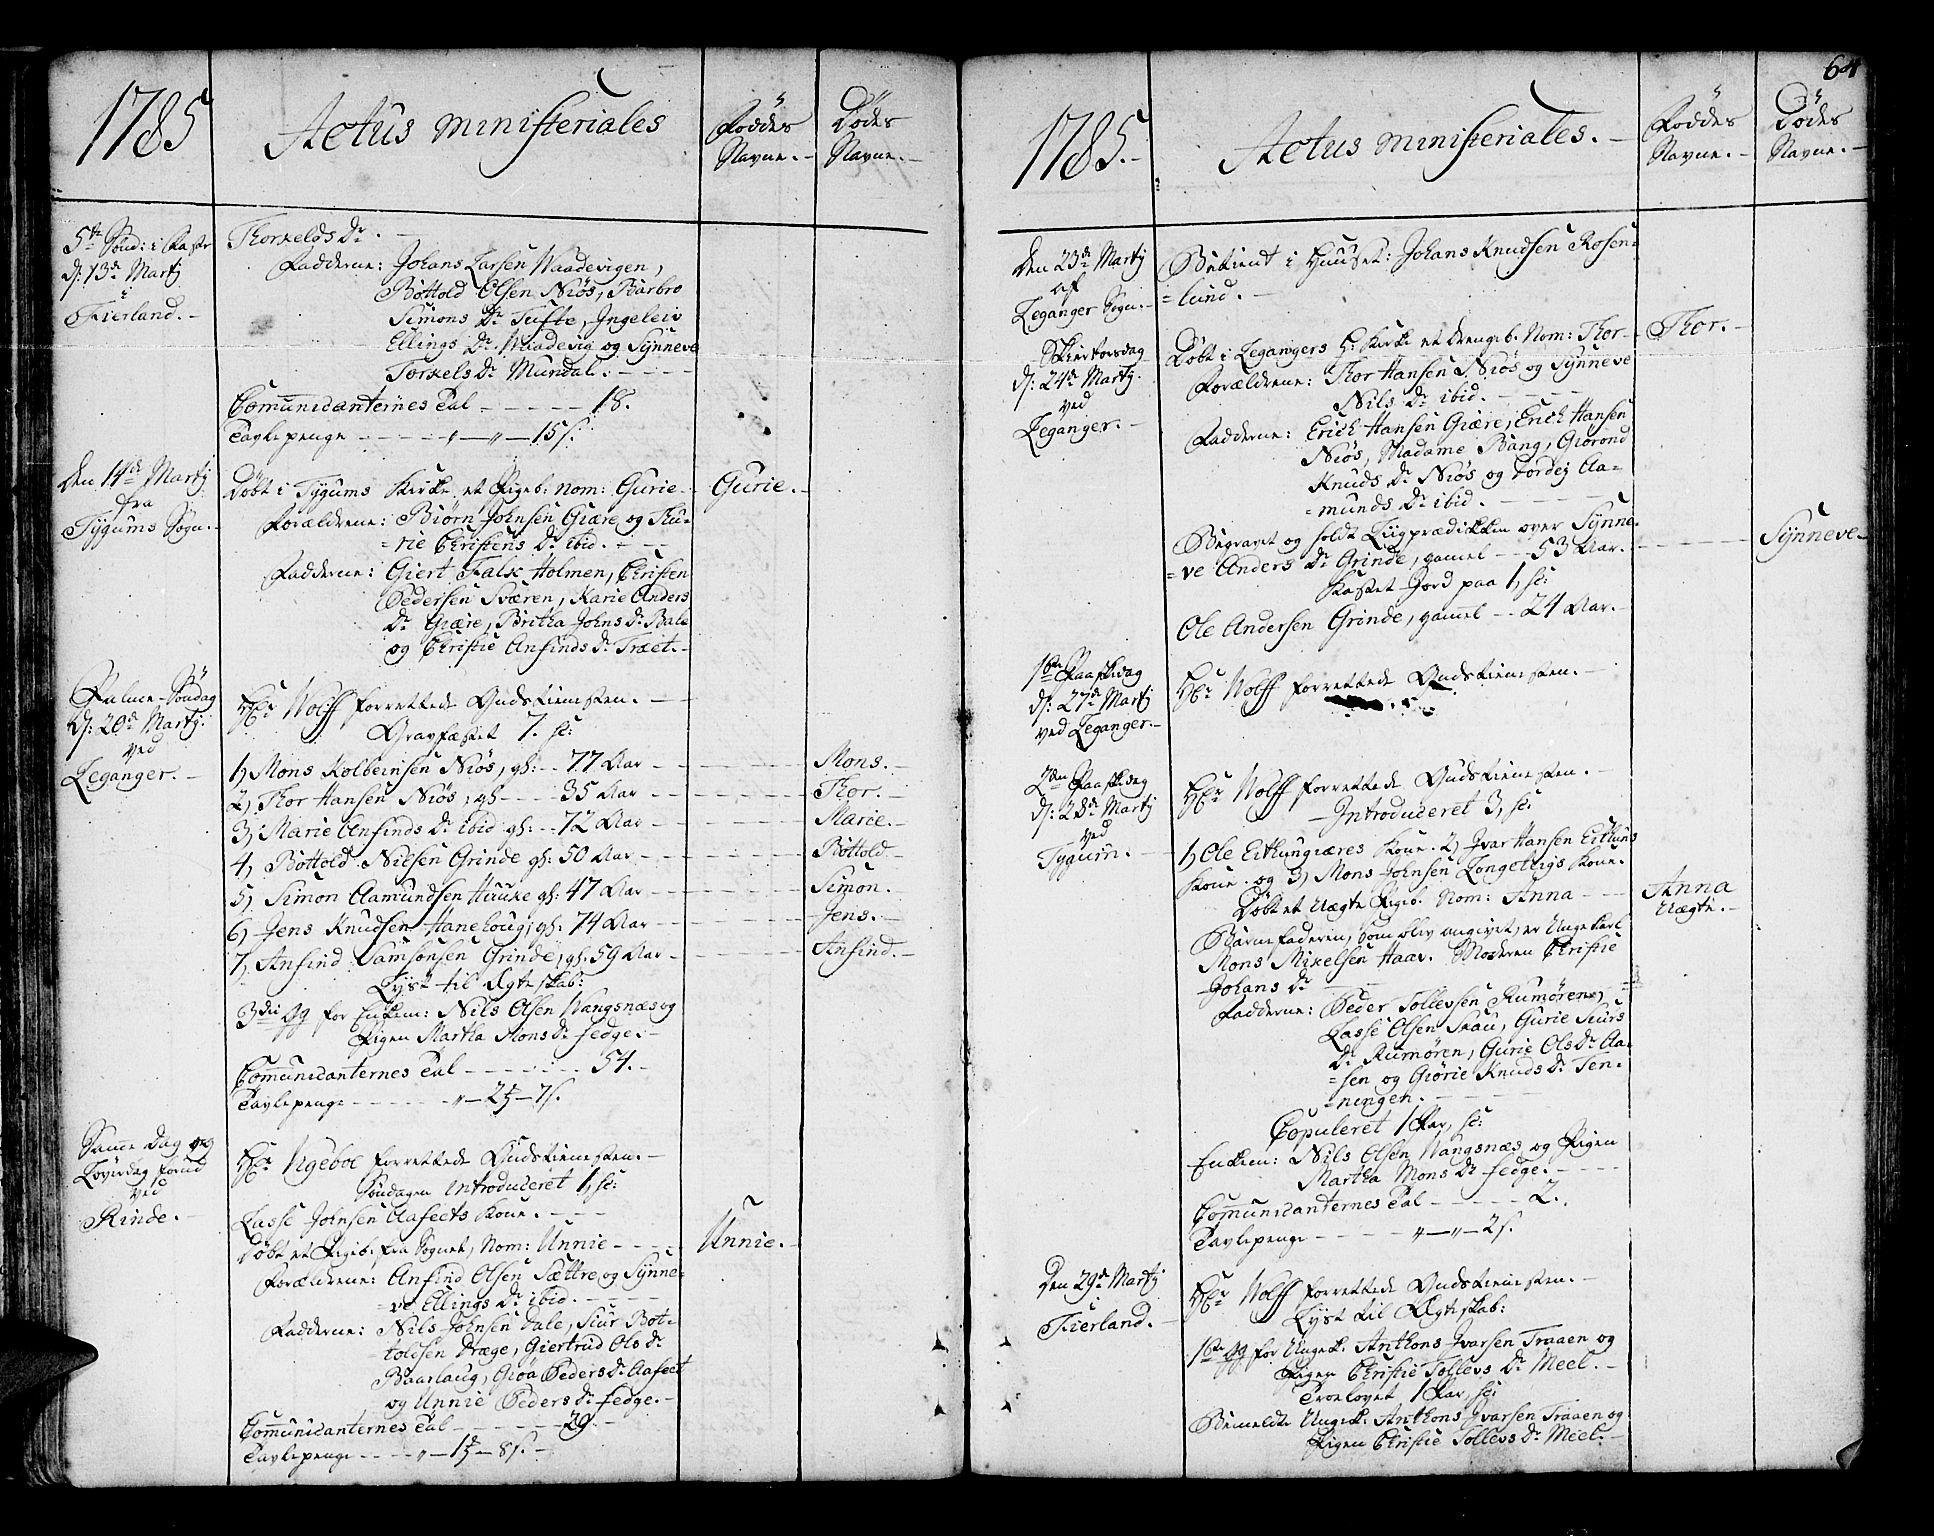 1785
Actus ministeriales
Föddes Navne.
Dödes Navne.
5te Sönd: i Faste
d: 13de Martij
i
Fierland.
Thorkelds Dr.
Fadderne: Johans Larsen Waadevigen,
Bottold Olsen Niøs, Barbro
Simons Dr Tufte, Ingeleiv
Ellings Dr Waadevig og Synneve
Torkels Dr Mundal.
Comunicanternes Tal - - - 18.
Tavlepenge - - - " — " — 15 s.
Den 14de Martij
fra
Tygums Sogn.
Döbt i Tygums Kirke et Pigeb: nom: Gurie
Gurie.
Forældrene: Biörn Johnsen Giære og Gu-
=rie Christens Dr ibid.
Fadderne: Giert Falk Holmen, Christen
Pedersen Sværen, Karie Anders
Dr Giære, Britha Johns Dr Bale
og Christie Anfinds Dr Træet.
Palme-Söndag
d: 20de Martij.
ved
Leganger.
Hr Wolff forrettede Gudstienesten.
Gravfæstet 7. sc:
1, Mons Kolbeinsen Niøs, gl: 77 Aar
Mons.
2, Thor Hansen Niøs, gl: 35 Aar
Thor.
3, Marie Anfinds Dr ibid gl: 72 Aar
Marie.
4, Bottold Nilsen Grinde gl: 50 Aar
Bottold
5, Simon Aamundsen Huuke gl: 47 Aar
Simon.
6, Jens Knudsen Hanehoug, gl: 74 Aar
Jens.
7, Anfind Samsonsen Grinde, gl: 59 Aar
Anfind.
Lyst til Ægteskab:
3die gg for Enkem: Nils Olsen Wangsnæs og
Pigen Martha Mons Dr Fedge.
Comunicanternes Tal - - - 54.
Tavlepenge - - - " — 2 — 7 s.
Same Dag og
Löverdag forud
ved
Rinde.
Hr Ugeboe forrettede Gudstienesten.
Söndagen Introduceret 1, sc:
Lasse Johnsen Aafeets Kone.
Döbt et Pigeb: fra Sognet, Nom: Unnie
Unnie.
Forældrene: Anfind Olsen Sættre og Synne-
=ve Ellings Dr ibid.
Fadderne: Nils Johnsen Dale, Siur Bot-
toldsen Dræge, Giertrud Ols Dr
Baarlaug, Giöa Peders Dr Aafeet
og Unnie Peders Dr Fedge.
Comunicanternes Tal - - - 29.
Tavlepenge - - - " — 1 — 8 s.
64
1785.
Actus ministeriales.
Föddes Navne.
Dödes Navne.
Den 23de Martij
af
Leganger Sogn.
Betient i Huuset: Johans Knudsen Rosen-
=lund.
Skiertorsdag
d: 24de Martij.
ved
Leganger.
Döbt i Legangers H: Kirke et Drengeb. Nom: Thor
Thor.
Forældrene: Thor Hansen Niøs og Synneve
Nils Dr ibid.
Fadderne: Erich Hansen Giære, Erich Hansen
Niøs, Madame Bang, Giörond
Knuds Dr Niøs og Tordej Aa-
=munds Dr ibid.
Begravet og holdt Liigprædikken over Synne-
Synneve
=ve Anders Dr Grinde, gamel - 53 Aar.
Kastet Jord paa 1, sc:
Ole Andersen Grinde, gamel - 24 Aar.
1ste Paaskedag
d: 27de Martij
ved Leganger.
Hr Wolff forrettede Gudstienesten.
2den Paaskedag
d: 28de Martij
ved
Tygum.
Hr Wolff forrettede Gudstienesten.
Introduceret 3, sc:
1, Ole Eithungiæres Kone. 2, Ivar Hansen Eithuns
Kone. og 3, Mons Johnsen Longetiigs Kone.
Döbt et Uægte Pigeb. Nom: Anna
Anna
Uægte.
Barnefaderen, som blev angivet, er Ungekarl
Mons Mikelsen Haar. Moderen Christie
Johans Dr
Fadderne: Peder Tollevsen Rumören,
Lasse Olsen Skau, Gurie Siurs
Dr Rumören, Gurie Ols Dr Aa-
=sen og Giörie Knuds Dr Ten-
=ningen.
Copuleret 1 Par, sc:
Enkem: Nils Olsen Wangsnæs og Pigen
Martha Mons Dr Fedge.
Comunicanternes Tal - - - 2.
Tavlepenge - - - " — " — 2 s.
Den 29de Martij
i
Fierland.
Hr Wolff forrettede Gudstienesten.
Lyst til Ægteskab:
1ste gg for Ungek: Anthons Ivarsen Traaen og
Pigen Christie Tollevs Dr Meel.
Troelovet 1 Par, sc:
Bemeldte Ungek: Anthons Ivarsen Traaen og
Pigen Christie Tollevs Dr Meel.